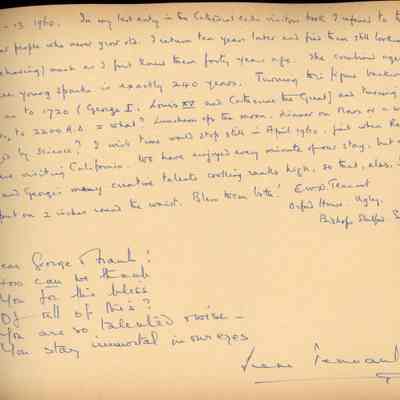 - 13 1960. In my last entry in the Cathedral visitors book I referred to
people who never grow old. I return ten years later and find them still
(behaving) much as I first knew them forty years ago. The combined ages
young sparks is exactly 240 years. Turning this figure backward
us to 1720 (George I. Louis XV and Catherine the Great) and turning
to 2200 A.D. = what? Luncheon off the moon, dinner on Mars or a
by Science? I wish time would stop still in April 1960, just when
are visiting California. We have enjoyed every minute of our stay, but
and George's many creative talents cooling ranks high, so that, alas,
put on 2 inches round the waist. Bless them both! E.W.D. Tennant
Orford House. Ugley.
Bishops Stortford
George & Frank!
How can we thank
You for this bless
Of all of this?
You are so talented
You stay immortal in our eyes
Tennant